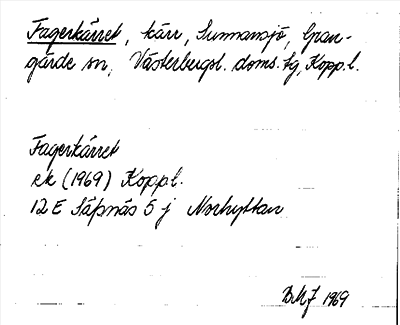 Fagerkärret, kärr, Sunnansjö, Gran-
gärde sn, Västerbergsl. doms. tg, Kopp.l.
Fagerkärret
ek (1969) Kopp.l.
12 E Säfsnäs 5 j Norhyttan
BMJ 1969